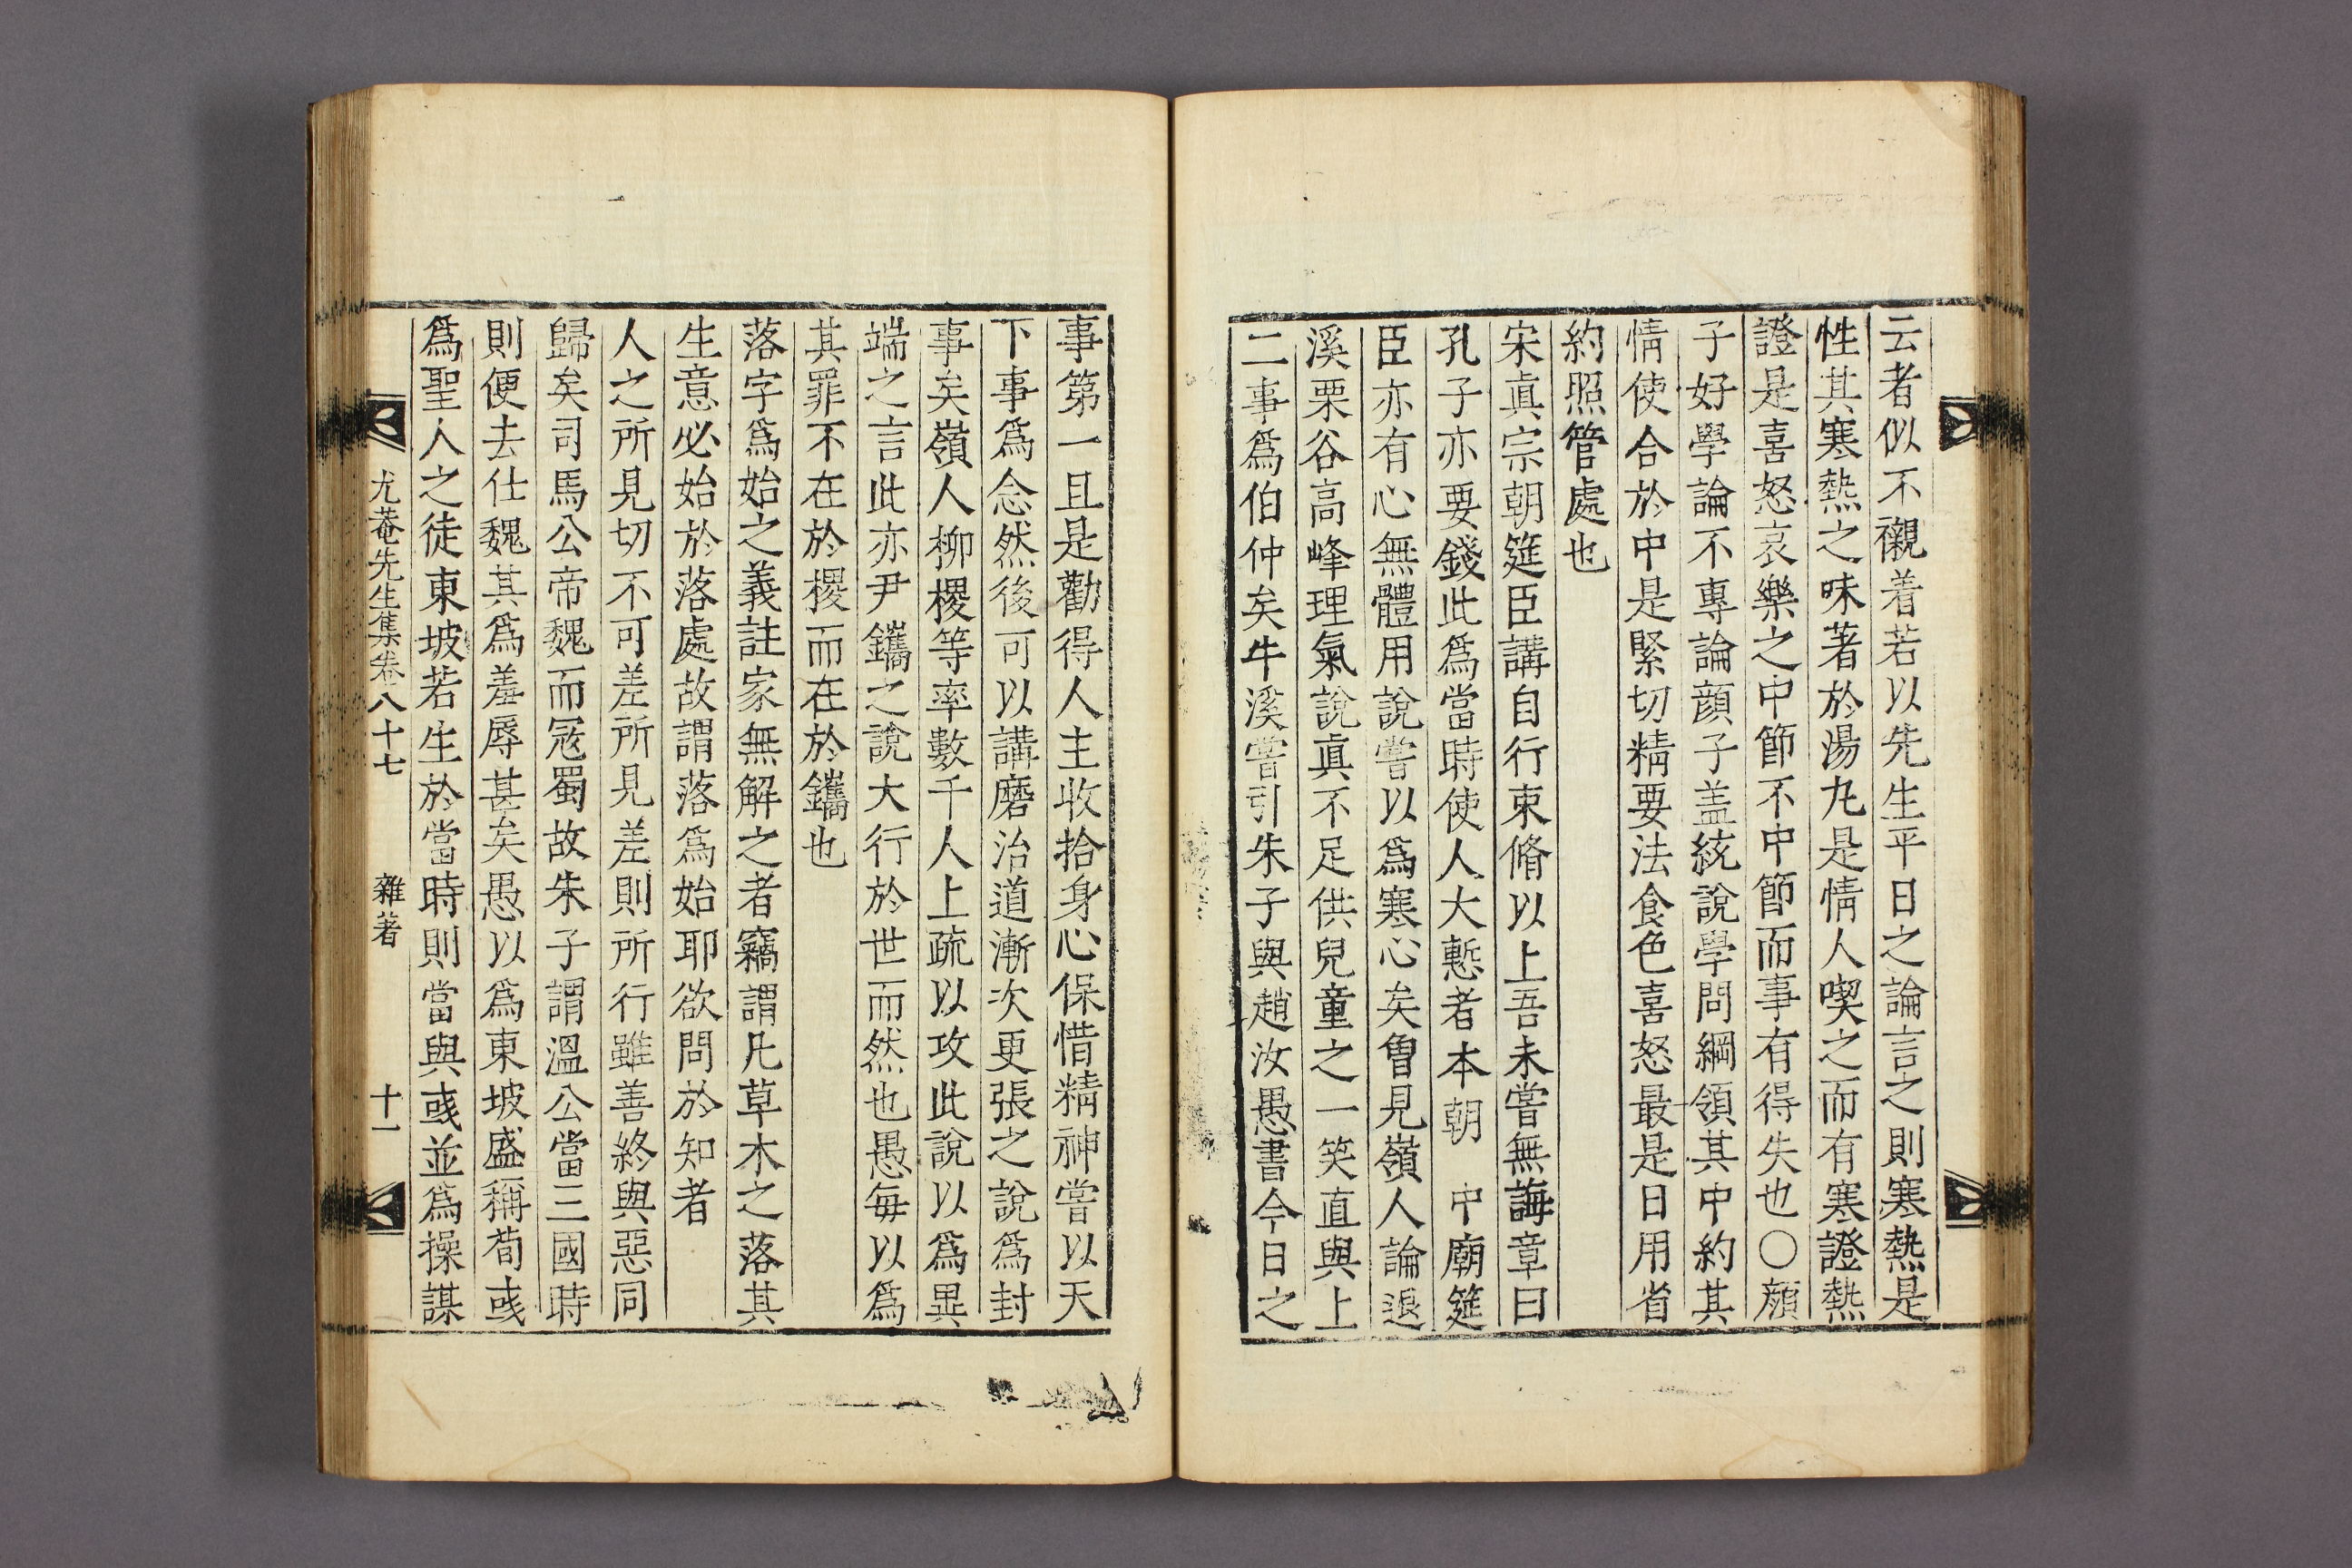 云者似不襯着若以先生平日之論言之則寒熱是
性其寒熱之味著於湯丸是情人喫之而有寒證熱
證是喜怒哀樂之中節不中節而事有得失也〇顔
子好學論不專論顔子盖統說學問綱領其中約其
情使合於中是緊切精要法食色喜怒最是日用省
約照管處也
宋眞宗朝筵臣講自行束脩以上吾未嘗無誨章曰
孔子亦要錢此爲當時使人大慙者本朝 中廟筵
臣亦有心無體用說嘗以爲寒心矣曾見嶺人論退
溪栗谷高峰理氣說眞不足供兒童之一笑直與上
二事爲伯仲矣牛溪嘗引朱子與趙汝愚書今日之
事第一且是勸得人主收拾身心保惜精神嘗以天
下事爲念然後可以講磨治道漸次更張之說爲封
事矣嶺人柳㮨等率數千人上疏以攻此說以爲異
端之言此亦尹鑴之說大行於世而然也愚每以爲
其罪不在於㮨而在於鑴也
落字爲始之義註家無解之者竊謂凡草木之落其
生意必始於落處故謂落爲始耶欲問於知者
人之所見切不可差所見差則所行雖善終與惡同
歸矣司馬公帝魏而寇蜀故朱子謂溫公當三國時
則便去仕魏其爲羞辱甚矣愚以爲東坡盛稱荀彧
爲聖人之徒東坡若生於當時則當與彧並爲操謀
尤菴先生集卷八十七 雜著 十一